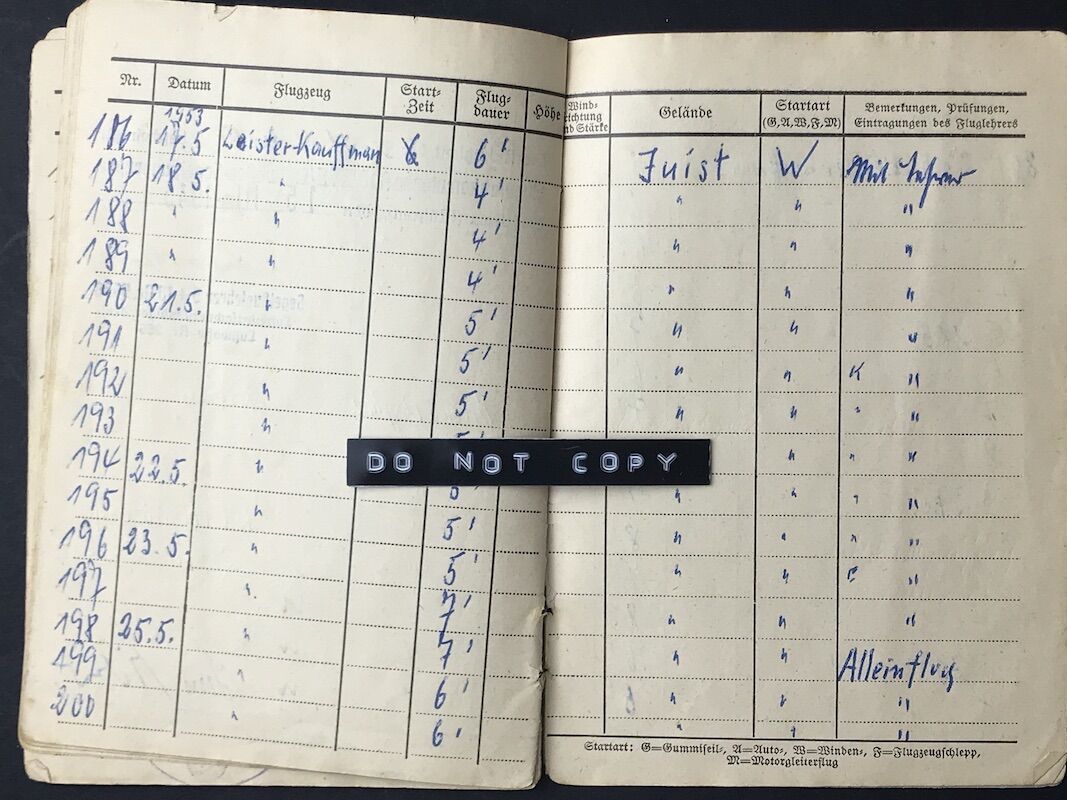 Nr. Datum Flugzeug Start-Zeit Flug-dauer Höhe Wind-richtung und Stärke Gelände Startart (G,A,W,F,M) Bemerkungen, Prüfungen, Eintragungen des Fluglehrers
1953
186 17.5 6' Juist W Mit Lehrer
187 18.5. " 4' " " "
188 " " 4' " " "
189 " " 4' " " "
190 21.5. " 5' " " "
191 " 5' " " "
192 " 5' " " "
193 " " " "
194 22.5. " " " "
195 " 5' " " "
196 23.5. " 5' " " "
197 " 7' " " "
198 25.5. " 7' " " Alleinflug
199 " 6' " " "
200 " 6' " " "
DO NOT COPY
Startart: G=Gummiseil-, A=Auto-, W=Winden-, F=Flugzeugschlepp,
M=Motorgleiterflug